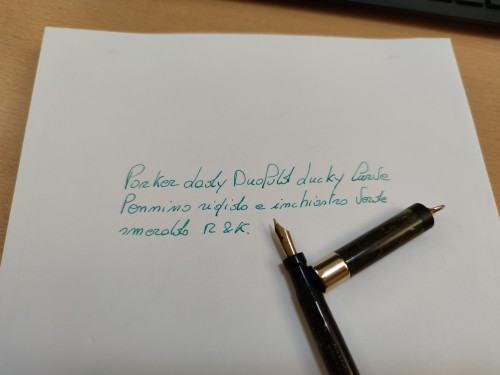 Parker lady Duofold lucky Curve
Pennino rigido e inchiostro Verde
smeraldo R &K.